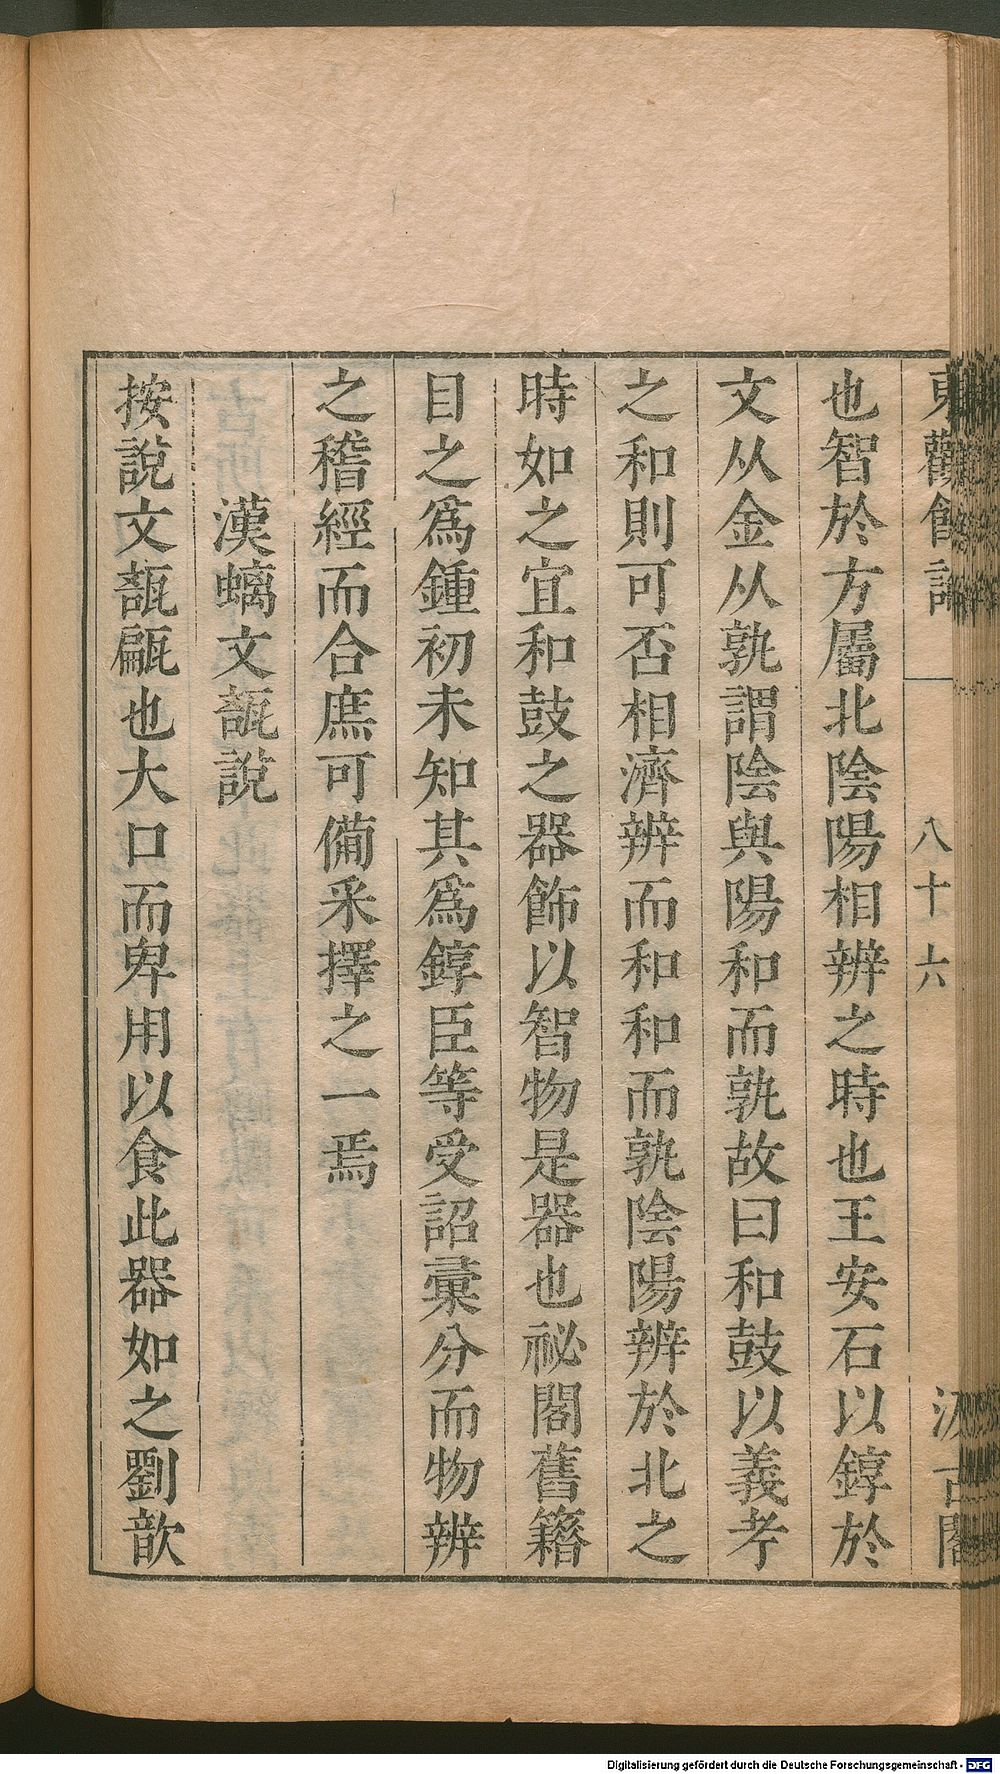 東觀餘論 八十六 汲古閣
也智於方屬北陰陽相辨之時也王安石以錞於
文从金从孰謂陰與陽和而孰故曰和鼓以義考
之和則可否相濟辨而和和而孰陰陽辨於北之
時如之宜和鼓之器飾以智物是器也祕閣舊籍
目之爲鍾初未知其爲錞臣等受詔彙分而物辨
之稽經而合庶可備采擇之一焉
漢螭文瓿說
按說文瓿甂也大口而卑用以食此器如之劉歆
Digitalisierung gefördert durch die Deutsche Forschungsgemeinschaft - DFG